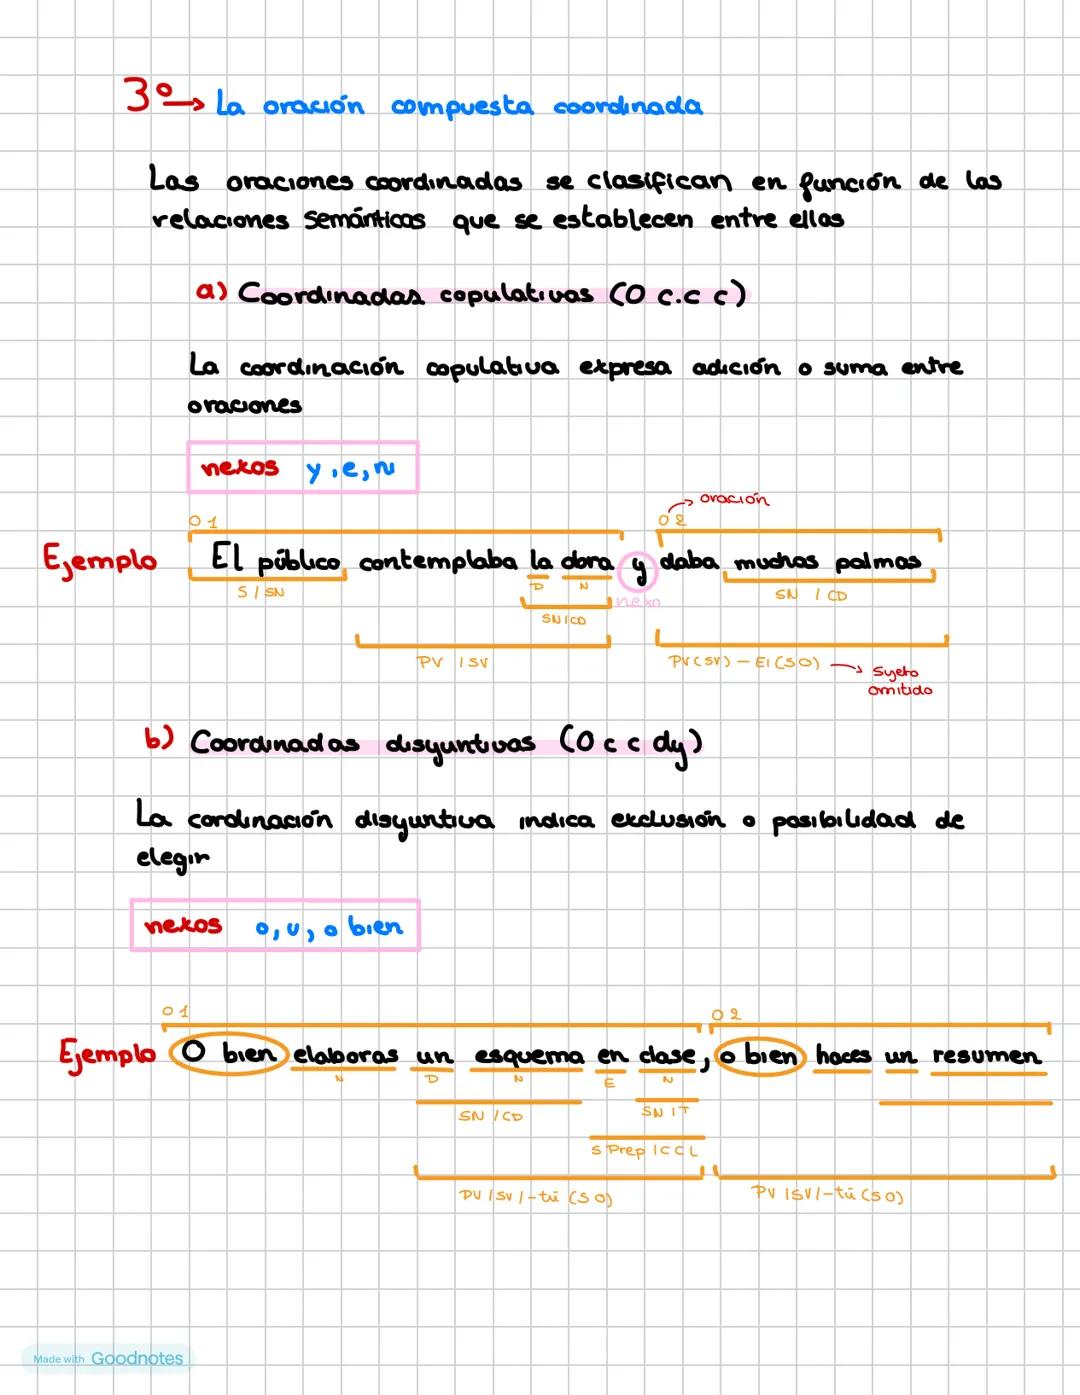 3º → La oración compuesta coordinada
Las oraciones coordinadas se clasifican en función de las
relaciones semánticas que se establecen entre ellas
a) Coordinadas copulativas (O c.c c)
La coordinación copulativa expresa adición o suma entre
oraciones
nexos y, e, ni
O 1 O 2 → oración
Ejemplo El público contemplaba la obra y daba muchas palmas
S / SN D N nexo SN / CD
SN / CD
PV / SV PV (SV) - El (S O) → Sujeto
omitido
b) Coordinadas disyuntivas (O c c dy)
La cordinación disyuntiva indica exclusión o posibilidad de
elegir
nexos o, u, o bien
O 1 O 2
Ejemplo O bien elaboras un esquema en clase, o bien haces un resumen
N D N E N
SN / CD SN / T
S Prep / C C L
PV / SV / - tú (S O) PV / SV / - tú (S O)
Made with Goodnotes